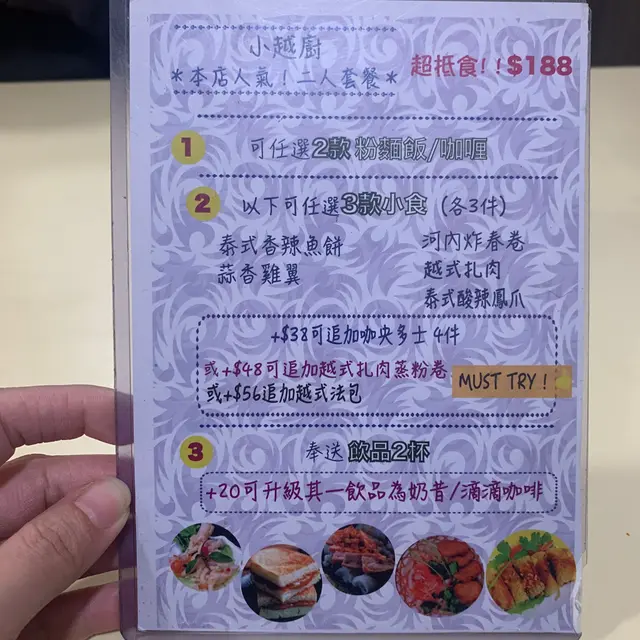 小越廚
*本店人氣！二人套餐*
超抵食!!$188
1 可任選2款 粉麵飯/咖喱
2 以下可任選3款小食 (各3件)
泰式香辣魚餅 河內炸春卷
蒜香雞翼 越式扎肉
泰式酸辣鳳爪
+$38可追加咖央多士 4件
或+$48可追加越式扎肉蒸粉卷
或+$56追加越式法包
MUST TRY !
3 奉送 飲品2杯
+20可升級其一飲品為奶昔/滴滴咖啡